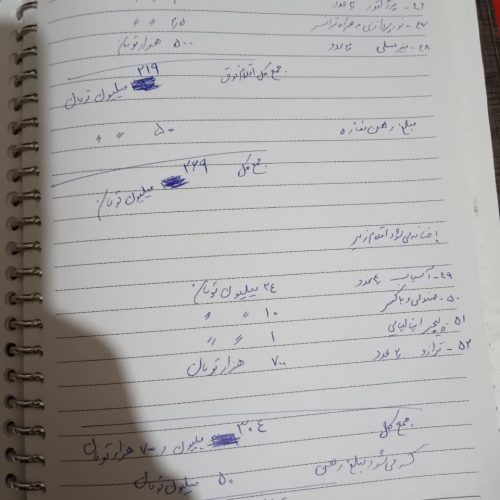 ۴۶- پرژکتور ۲ عدد
۴۷- نورپردازی به همراه ترانسر ۲،۵ 〃 〃
۴۸- میز عسلی ۲ عدد ۵۰۰ هزار تومان
جمع کل اقلام فوق ۲۱۹ میلیون تومان
مبلغ رهن مغازه ۵۰ 〃 〃
جمع کل ۲۶۹ میلیون تومان
اضافه می شود اقلام زیر
۴۹- آسیاب ۲ عدد ۲۴ میلیون تومان
۵۰- صندلی و باکس ۱۰ 〃 〃
۵۱- پیچر ایتالیایی ۱ 〃 〃
۵۲- ترازو ۲ عدد ۷۰۰ هزار تومان
جمع کل ۳۰۴ میلیون و ۷۰۰ هزار تومان
که می شود مبلغ رهن ۵۰ میلیون تومان